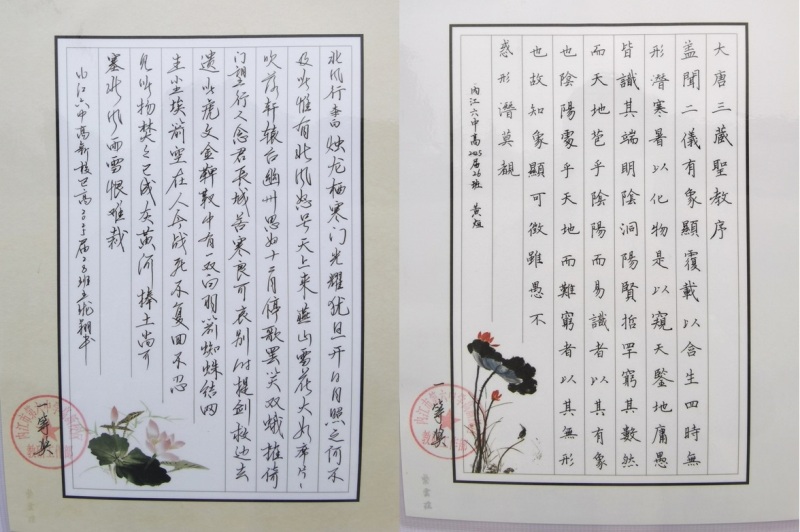 北风行 烛龙栖寒门光耀犹旦开日月照之何不
及此惟有北风怒号天上来燕山雪花大如席片片
吹落轩辕台幽州思妇十二月停歌罢笑双蛾摧倚
门望行人念君长城苦寒良可哀别时提剑救边去
遗此虎文金鞞靫中有一双白羽箭蜘蛛结网
生尘埃箭空在人今战死不复回不忍
见此物焚之已成灰黄河捧土尚可
塞北风雨雪恨难裁
内江六中高新校区高二〇二五届23班
一等奖
大唐三藏聖教序
盖聞二儀有象顯覆載以含生四時無
形潛寒暑以化物是以窺天鑒地庸愚
皆識其端明陰洞陽賢哲罕窮其數然
而天地苞乎陰陽而易識者以其有象
也陰陽處乎天地而難窮者以其無形
也故知象顯可徵雖愚不
惑形潛莫覩
内江六中高2025届26班 黄烜
一等奖